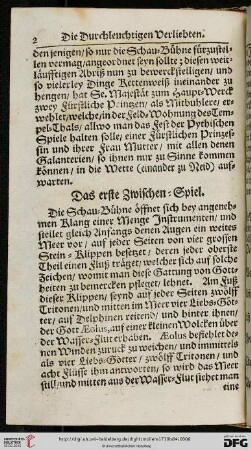 2 Die Durchleuchtigen Verliebten.
denjenigen/ so nur die Schau-Bühne fürzustel-
len vermag/ angeordnet seyn sollte; diesen weit-
läufftigen Abriß nun zu bewerckstelligen/ und
so vielerley Dinge Kettenweiß ineinander zu
hengen/ hat Se. Majestät zum Haupt-Werck
zwey Fürstliche Printzen/ als Mitbuhlere/ er-
wehlet/ welche/ in der Feld-Wohnung des Tem-
pel-Thals/ allwo man das Fest der Pythischen
Spiele halten solle/ einer Fürstlichen Prinzes-
sin und ihrer Frau Mutter/ mit allen denen
Galanterien/ so ihnen nur zu Sinne kommen
können/ in die Wette (einander zu Neid) auf-
warten.
Das erste Zwischen-Spiel.
Die Schau-Bühne öffnet sich bey angeneh-
men Klang einer Menge Instrumenten/ und
stellet gleich Anfangs denen Augen ein weites
Meer vor/ auf jeder Seiten von vier grossen
Stein-Klippen besetzet/ deren jeder oberste
Theil einen Fluß träget/ welcher sich auf solche
Zeichen/ womit man diese Gattung von Gott-
heiten zu bemercken pfleget/ lehnet. Am Fuß
dieser Klippen/ seynd auf jeder Seiten zwölff
Tritonen/ und mitten im Meer vier Liebs-Göt-
ter/ auf Delphinen reitend/ und hinter ihnen/
der Gott Æolus/ auf einer kleinen Wolcken über
der Wasser-Flut erhaben. Æolus befiehlet de-
nen Winden zuruck zu weichen/ und immittels
als vier Liebs-Götter/ zwölff Tritonen/ und
acht Flüsse ihm antworten/ so wird das Meer
still/ und mitten aus der Wasser-Flut siehet man
eine
http://digi.ub.uni-heidelberg.de/diglit/